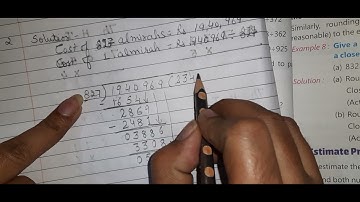 2 Solution:-
Cost of 827 almirah = Rs 1940,969
Cost of 1 almirah = Rs 1940969 ÷ 827
827)1940969(234
-1654↓
2869
-2481↓
03886
3308
05
Similarly, rounding
reasonable) to the e
+362
+925
Example 8 : Give a
a close
(a) 832
Solution : (a) Rou
the
(b) Rou
the
Estimate Pr
and both nu